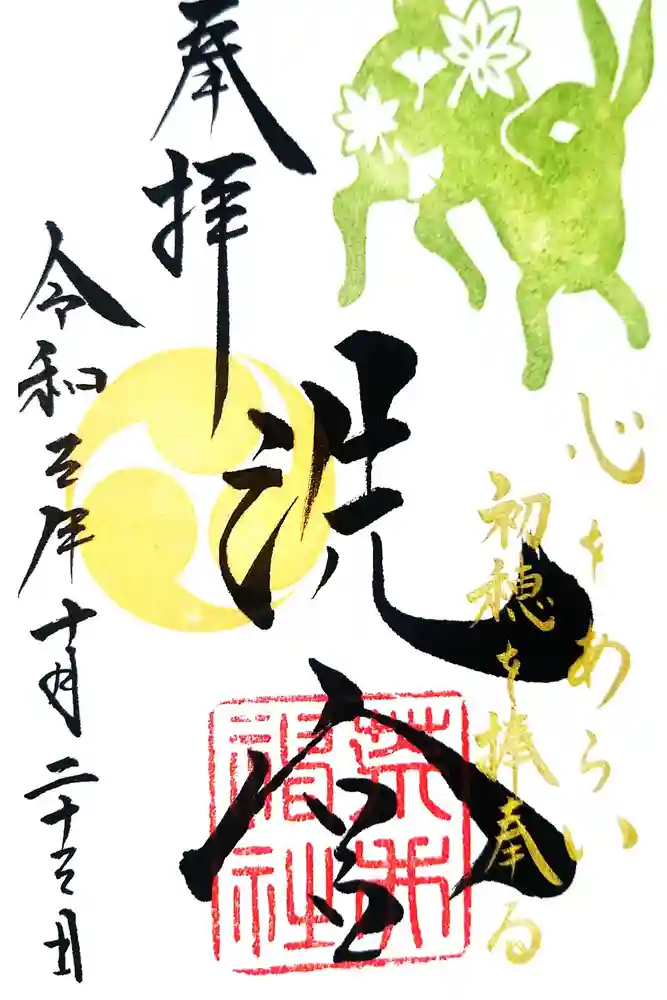 心をあらい
初穂を捧奉る
奉拝
洗金
荒木
神社
令和三年十月二十三日